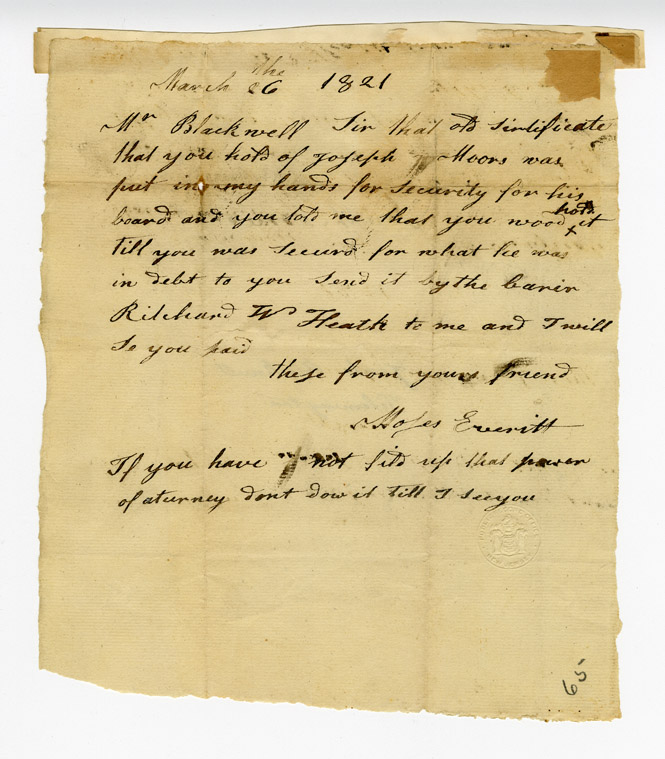 March the 26 1821
Mr Blackwell Sir that old Sirtificate
that you hold of Joseph Moors was
put in my hands for Security for his
board and you told me that you wood hold it
till you was Securd for what he was
in debt to you Send it by the barir
Ritchard Wm Heath to me and I will
Se you paid
these from your friend
Moses Everitt
If you have not fild up that power
of aturney dont dow it till I See you
65